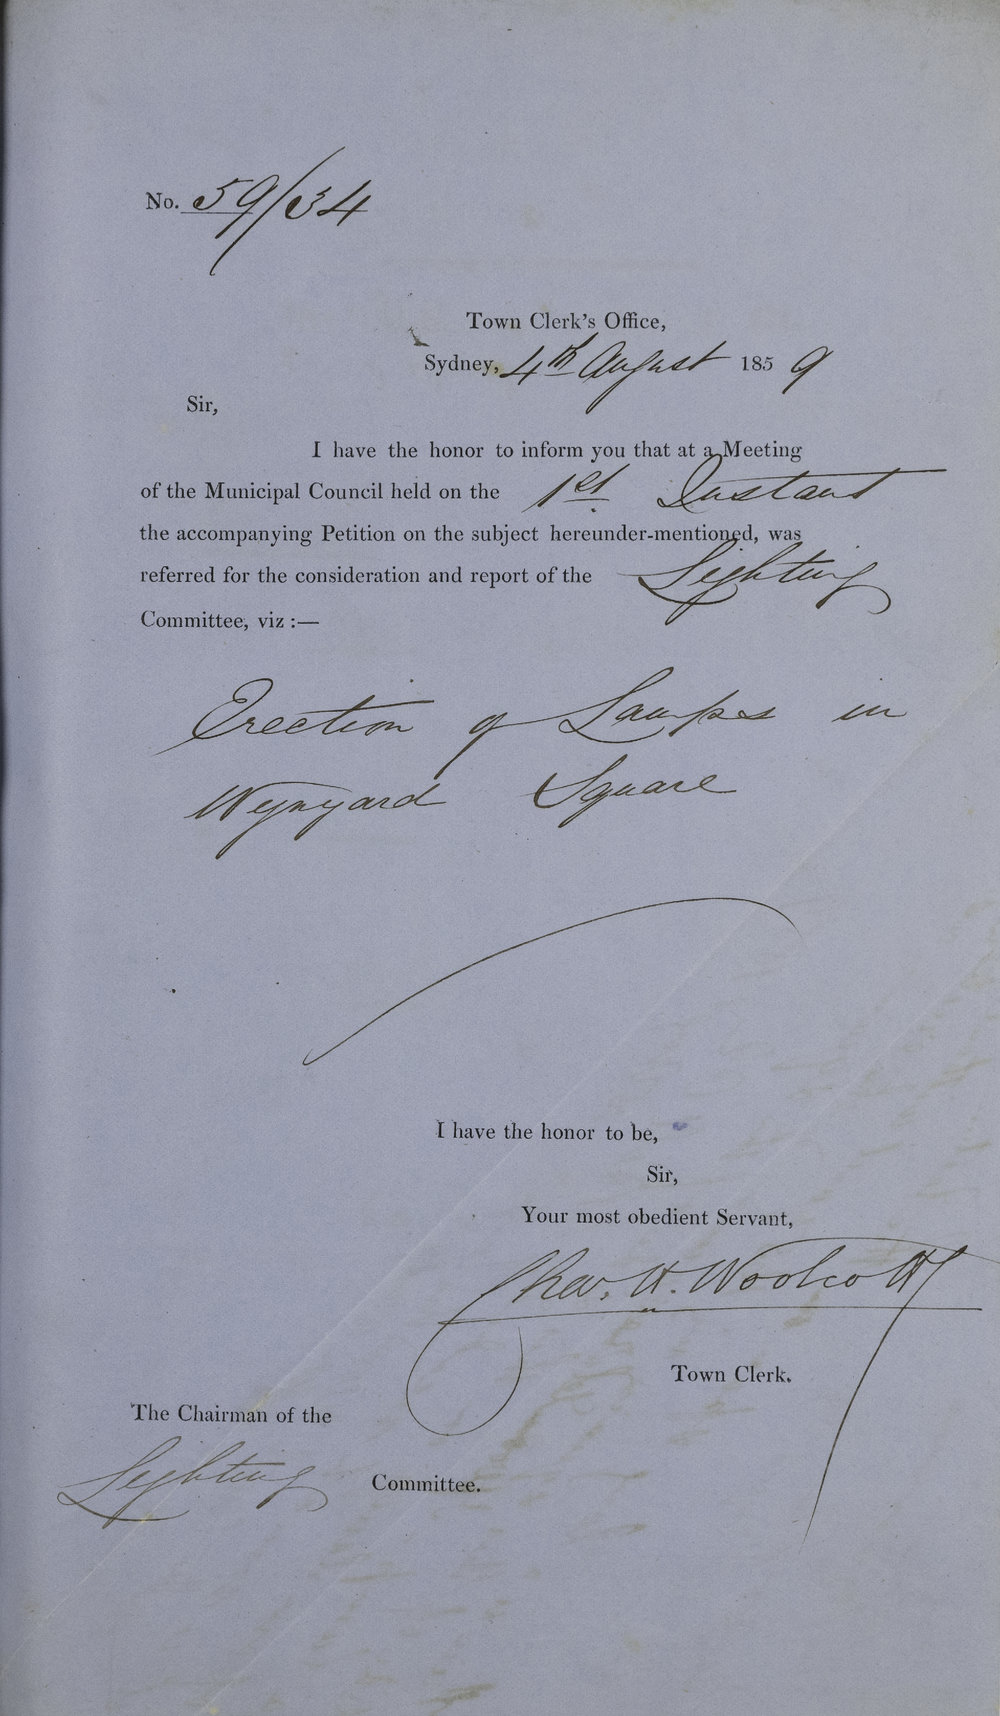 No. 59/34
Town Clerk's Office,
Sydney, 4th August 1859
Sir,
I have the honor to inform you that at a Meeting
of the Municipal Council held on the 1st Instant
the accompanying Petition on the subject hereunder-mentioned, was
referred for the consideration and report of the Lighting
Committee, viz :—
Erection of Lamps in
Wynyard Square
I have the honor to be,
Sir,
Your most obedient Servant,
Chas. H. Woolcott
Town Clerk.
The Chairman of the
Lighting Committee.